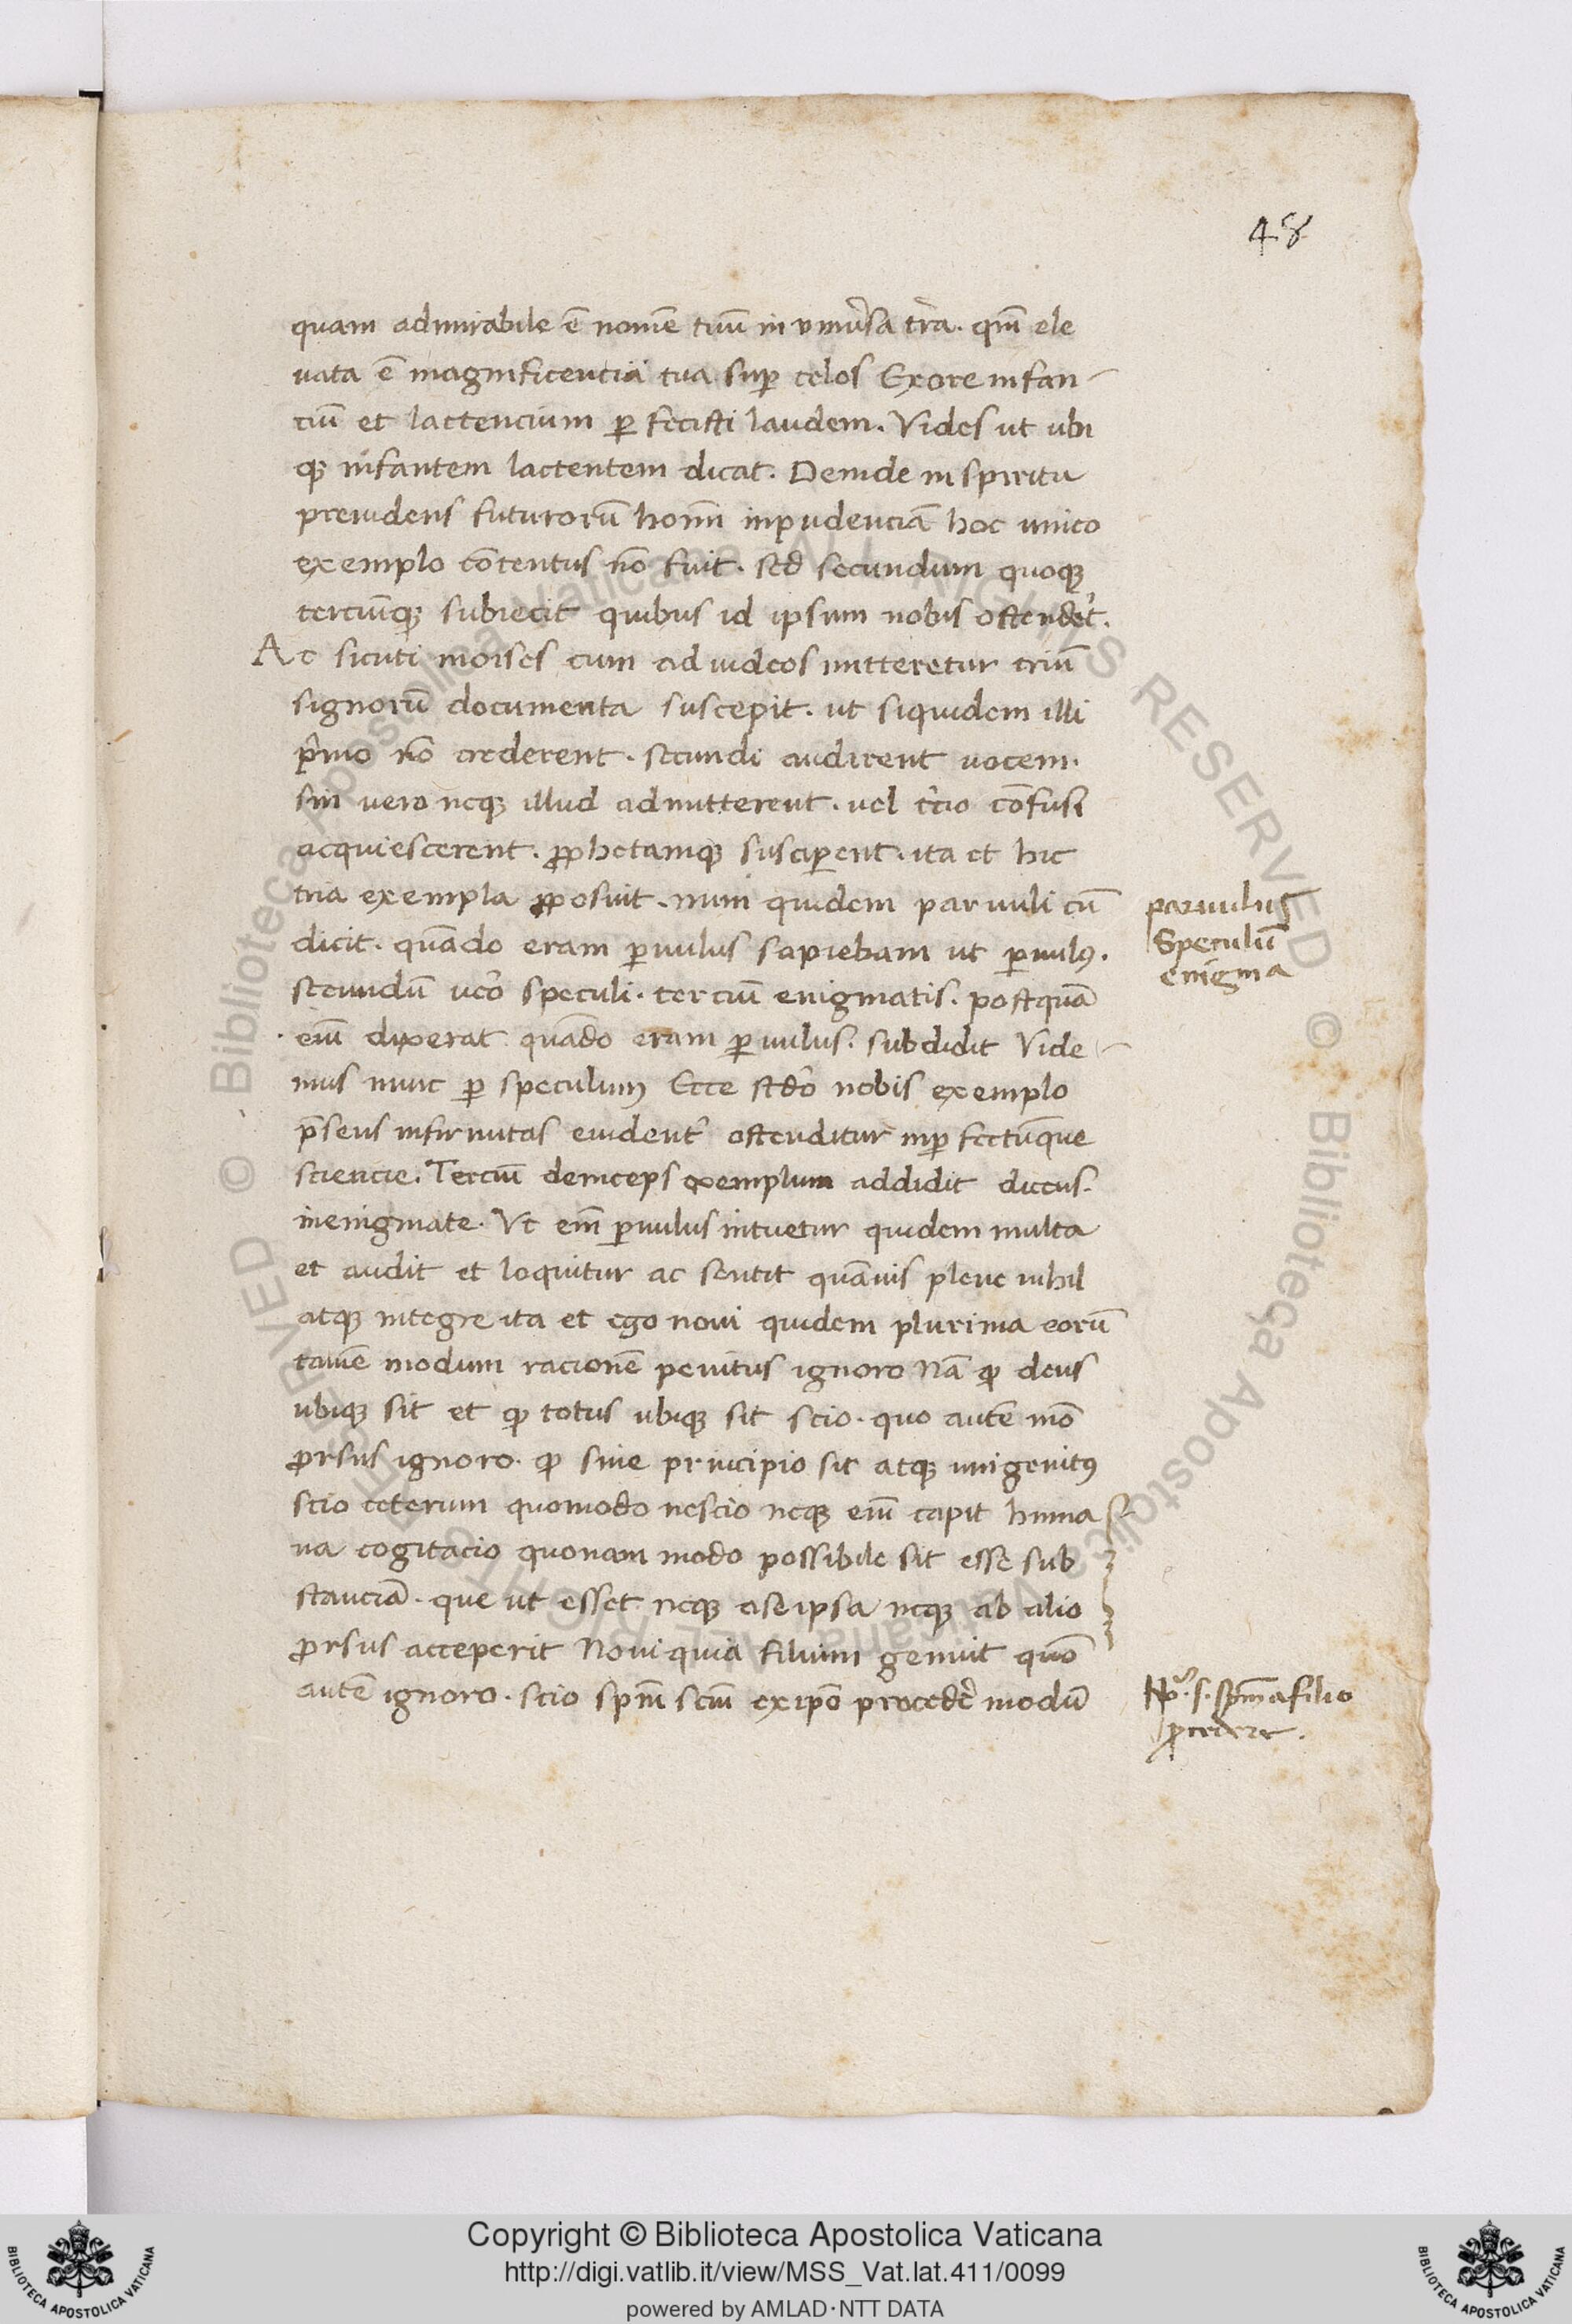 48
quam admirabile ē nomē tuū in vniu͛sa tr̄a. qm̄ ele
uata ē magnificentia tua sup̱ celos Ex ore infan-
ciū et lactencium p̱ fecisti laudem. Vides ut ubi
qꝫ infantem lactentem dicat. Deinde in spiritu
preuidens futurorū hom̄ inpudenciā hoc unico
exemplo cōtentus nō fuit. sed secundum quoqꝫ
terciūqꝫ subiecit quibus id ipsum nobis ostender̄t.
Ac sicuti moises cum ad iudeos mitteretur triū
signorū documenta suscepit. ut siquidem illi
p͛mo nō crederent. secundi audirent uocem.
sin uero neqꝫ illud admitterent. uel t͛cio cōfusi
acquiescerent. ꝓphetamqꝫ suscip̱ent. ita et hic
tria exempla ꝓposuit. num quidem paruuli cū
dicit. quādo eram p̱uulus sapiebam ut p̱uulꝰ.
secundū uero speculi. tercium enigmatis. postquā
eiū dixerat quādo eram p̱uulus. subdidit Vide-
mus nunc p̱ speculum Ecce scd̄o nobis exemplo
p̄sens infirmitas euident͛ ostenditur inp̱fectūque
sciencie. Terciū deinceps exemplum addidit dicens.
in enigmate. Vt em̄ p̱uulus intuetur quidem multa
et audit et loquitur ac sentit quāuis plene nihil
atqꝫ integre ita et ego noui quidem plurima eorū
tamē modum racionē penitus ignoro Nā ꝙ deus
ubiqꝫ sit et ꝙ totus ubiqꝫ sit scio. quo autē mō
ꝓrsus ignoro. ꝙ sine principio sit atqꝫ unigenitꝰ
scio ceterum quomodo nescio neqꝫ eiū capit huma
na cogitacio quonam modo possibile sit esse sub
stanciā. que ut esset neqꝫ a se ipsa neqꝫ ab alio
ꝓrsus acceperit Noui quia filium genuit quō
autē ignoro. scio spm̄ scm̄ ex ipō procede͛ modū
paruulus
Speculū
enigma
s. spm̄ a filio
ꝓcedere.
Copyright © Biblioteca Apostolica Vaticana
http://digi.vatlib.it/view/MSS_Vat.lat.411/0099
powered by AMLAD·NTT DATA
BIBLIOTECA APOSTOLICA VATICANA
BIBLIOTECA APOSTOLICA VATICANA
© Biblioteca Apostolica Vaticana ALL RIGHTS RESERVED
© Biblioteca Apostolica Vaticana ALL RIGHTS RESERVED